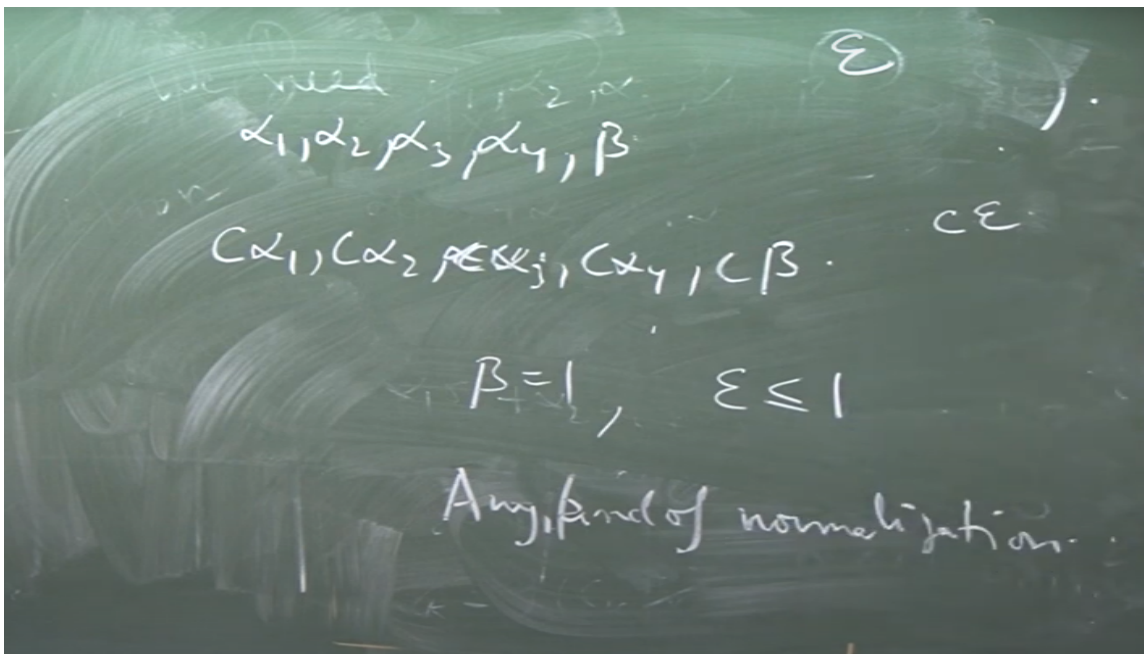 ε
we need
α₁, α₂, α₃, α₄, β
cε
Cα₁, Cα₂, Cα₃, Cα₄, Cβ.
β = 1, ε ≤ 1
Any kind of normalization.